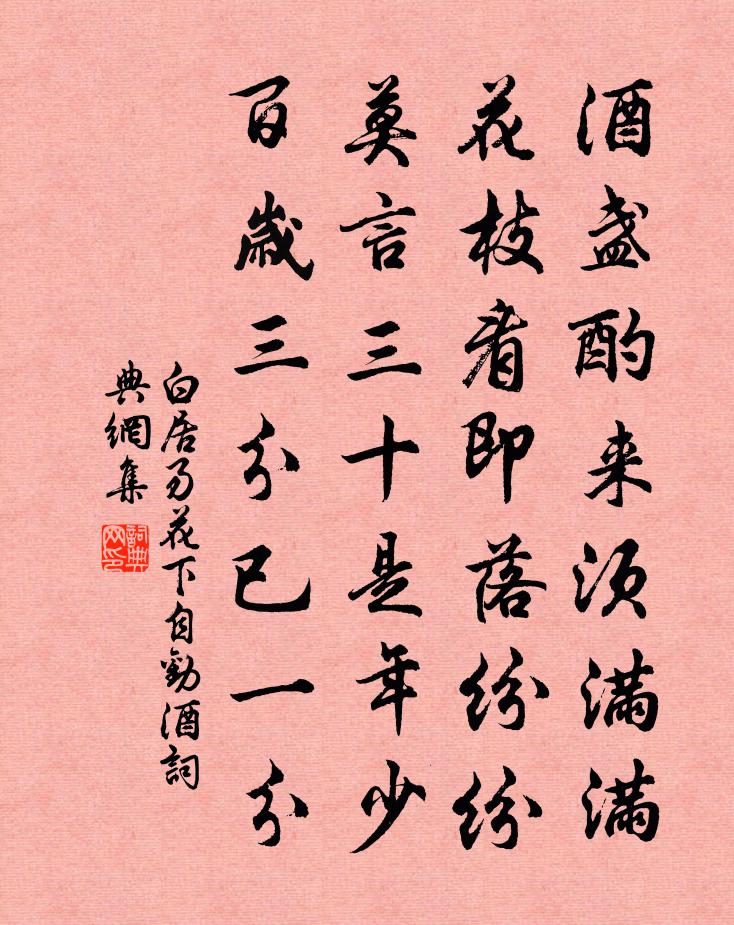 酒盏酌来须满满
花枝看即落纷纷
莫言三十是年少
百歲三分已一分
白居易花下自勸酒詞
典網集
詞典網印